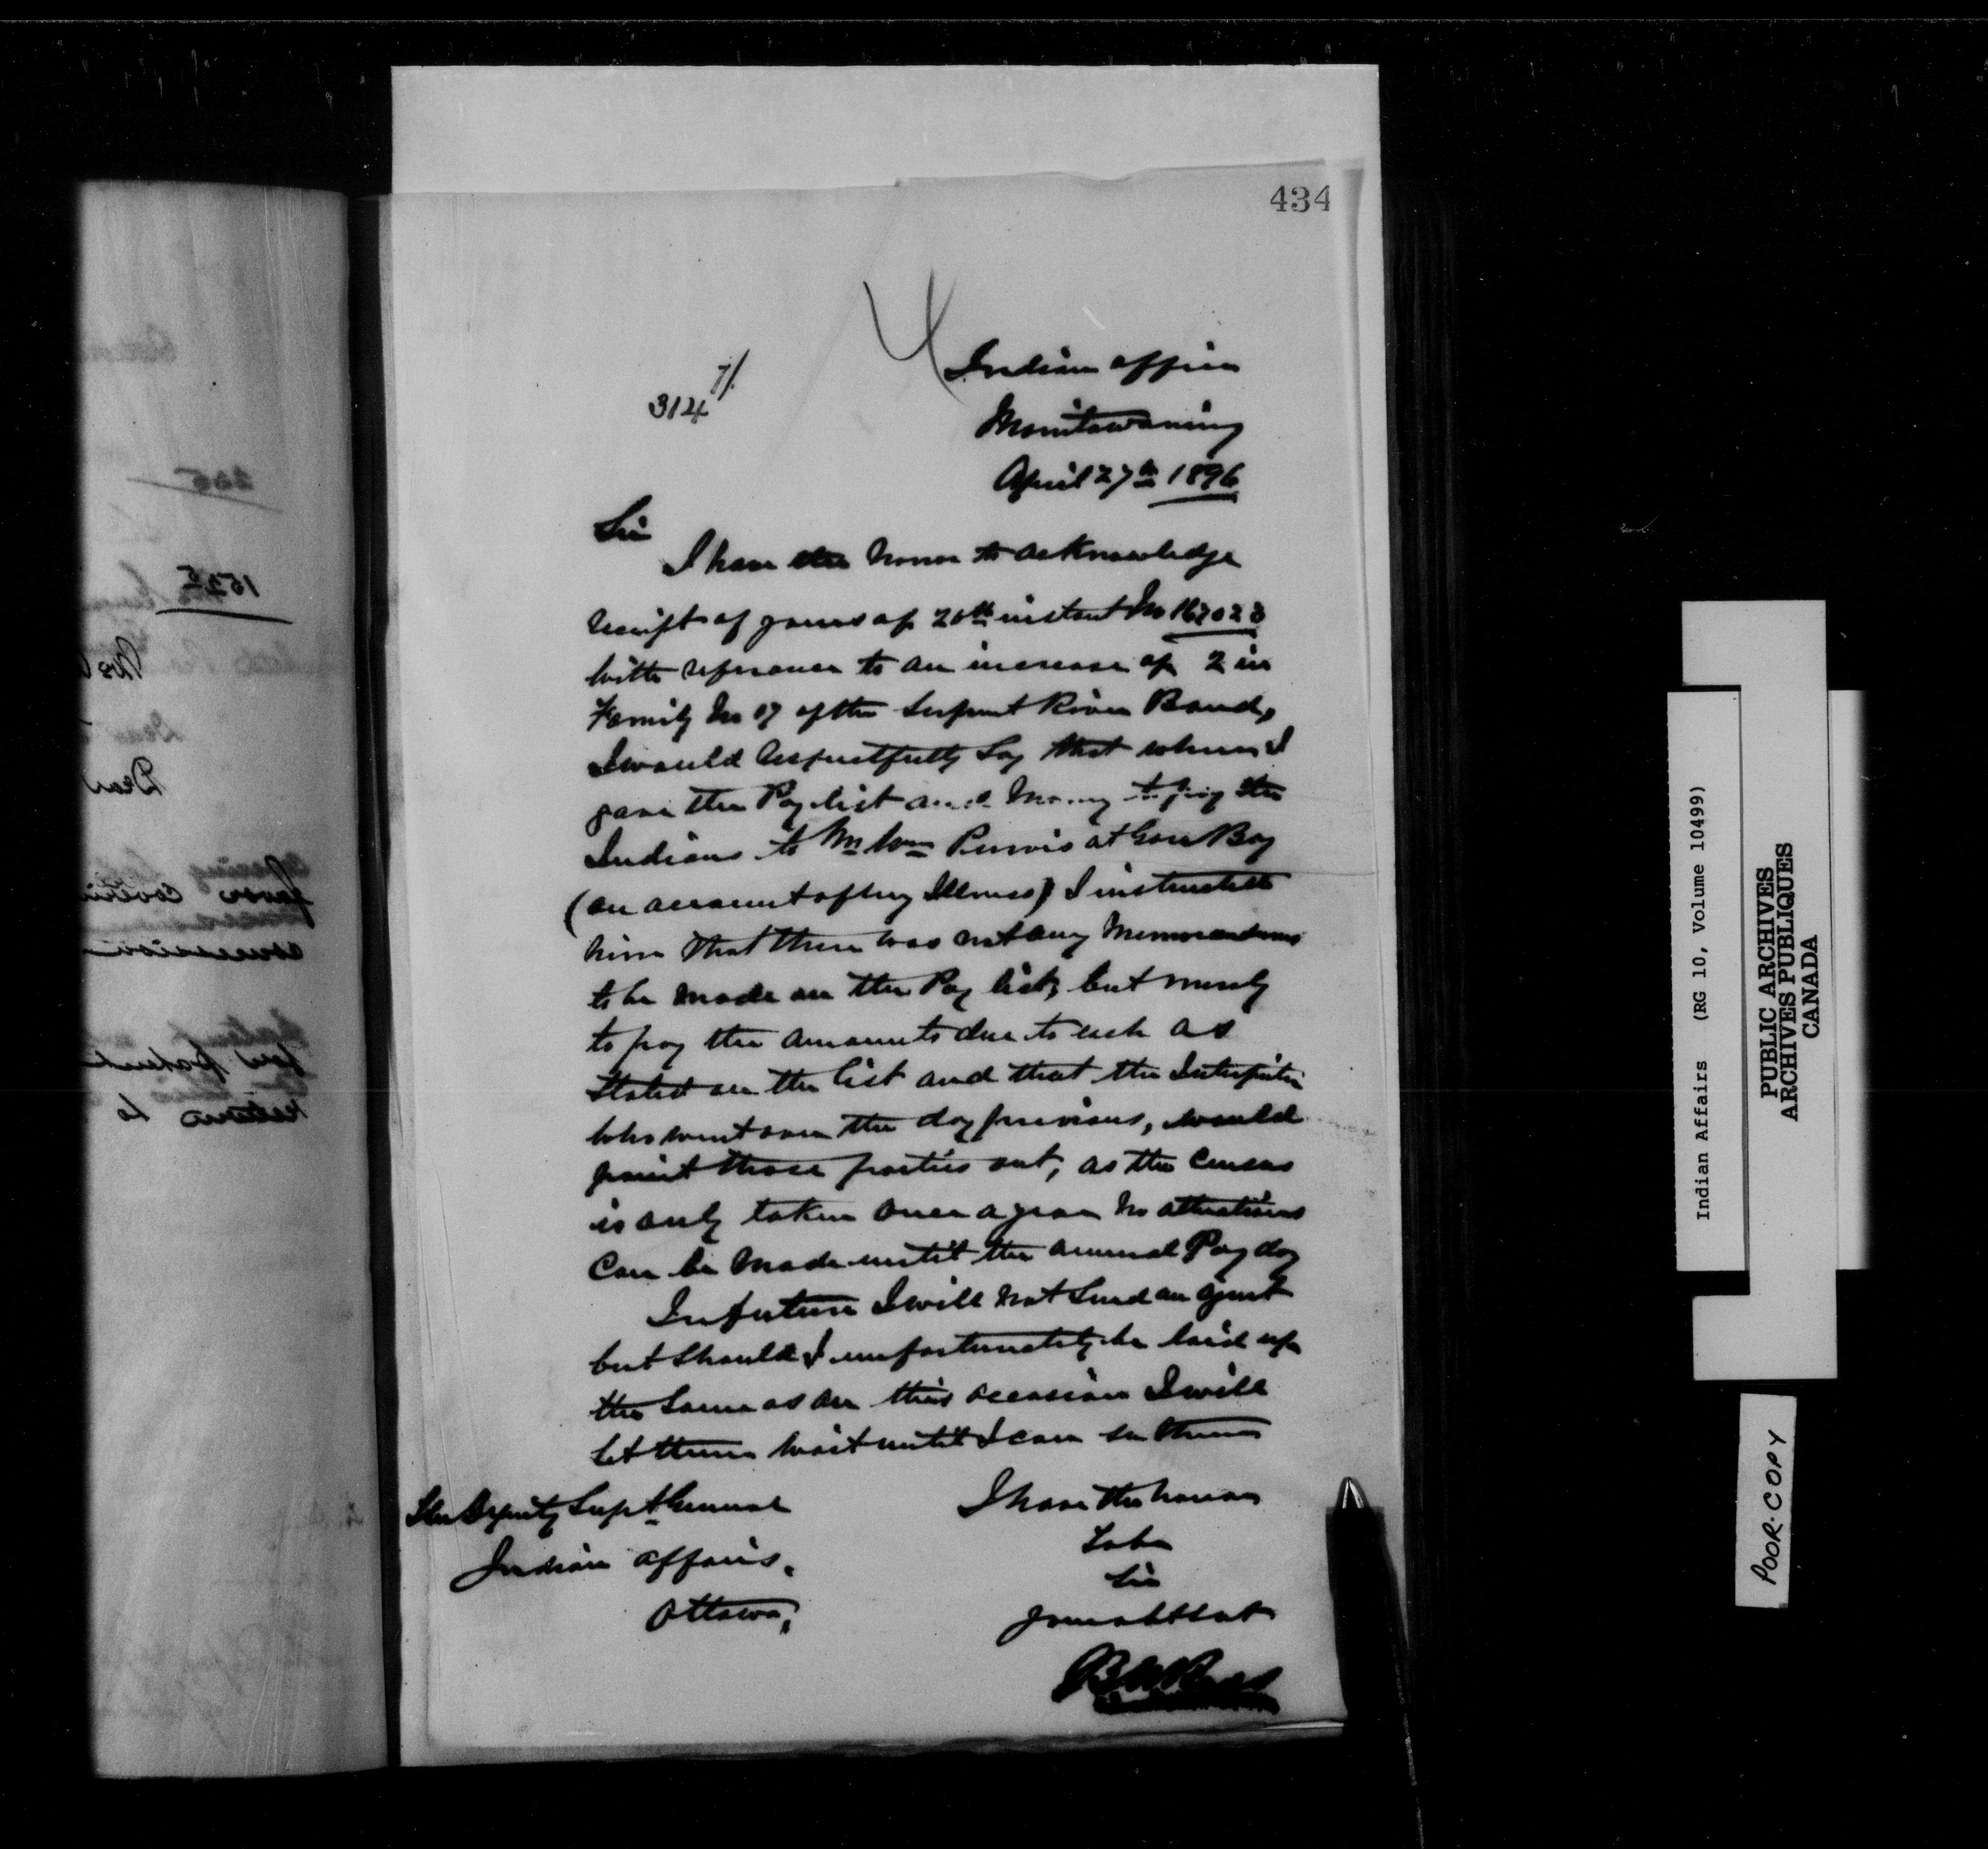 434
314 7/.
Indian Office
Manitowaning
April 27th 1896
Sir
I have the honor to acknowledge
receipt of yours of 20th instant No 162023
with reference to an increase of 2 in
Family No 17 of the Serpent River Band,
I would respectfully say that when I
gave the Pay list and Money to pay the
Indians to Mr Wm Purvis at Gore Bay
(on account of my Illness) I instructed
him that there was not any Memorandums
to be made on the Pay list, but merely
to pay the amounts due to each as
stated on the list and that the Interpreter
who went over the day previous, would
point those parties out, as the Census
is only taken once a year no alterations
can be made until the annual Pay day
In future I will not send an agent
but should I unfortunately be laid up
the same as on this occasion I will
let them wait until I can see them
I have the honor
to be
Sir
your obt Servt
BWRoss
The Deputy Supt General
Indian Affairs.
Ottawa,
Indian Affairs (RG 10, Volume 10499)
PUBLIC ARCHIVES
ARCHIVES PUBLIQUES
CANADA
POOR-COPY